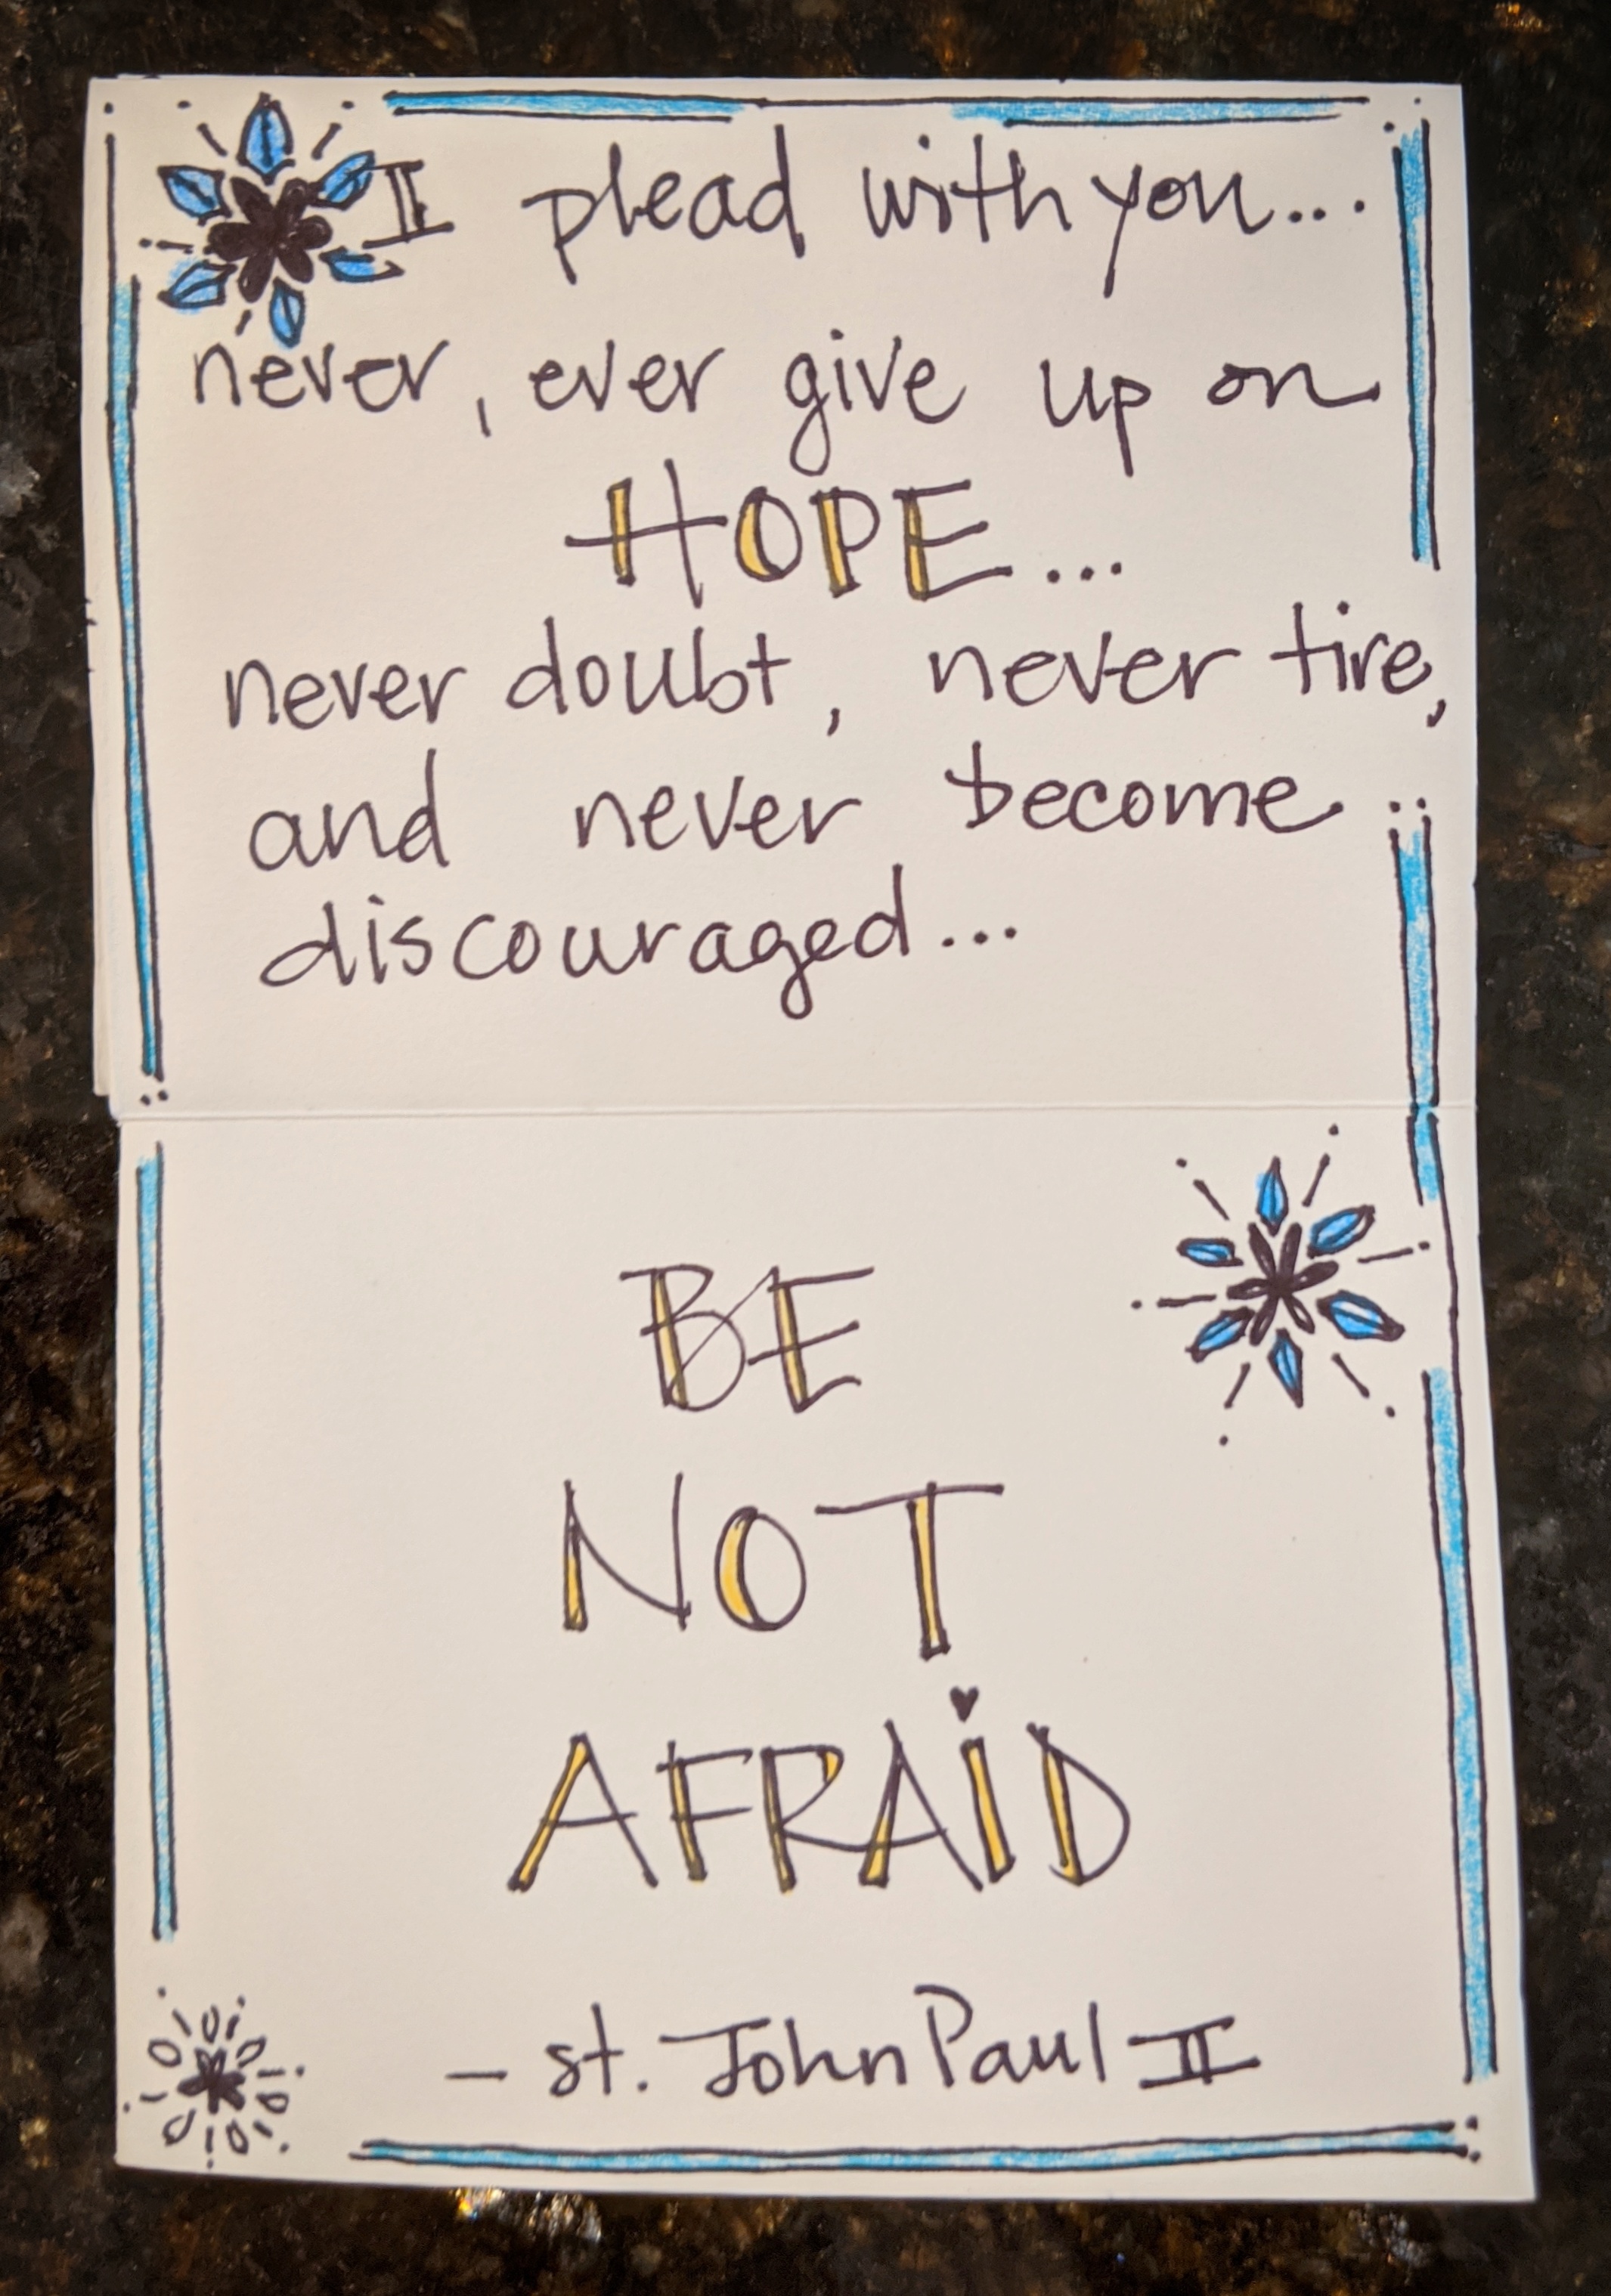 I plead with you...
never, ever give up on
HOPE...
never doubt, never tire,
and never become
discouraged...
BE
NOT
AFRAiD
- st. John Paul II